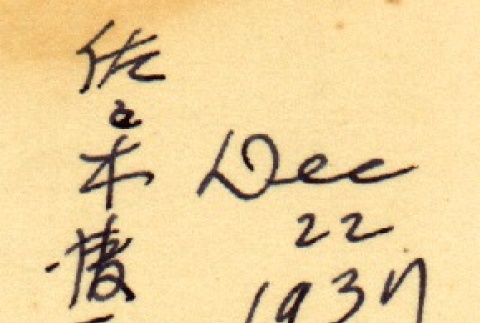 佐々木
Dec
22
1937